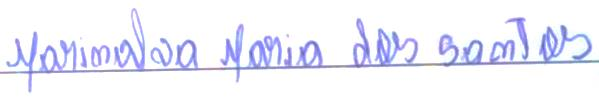 Marinalva Maria dos Santos